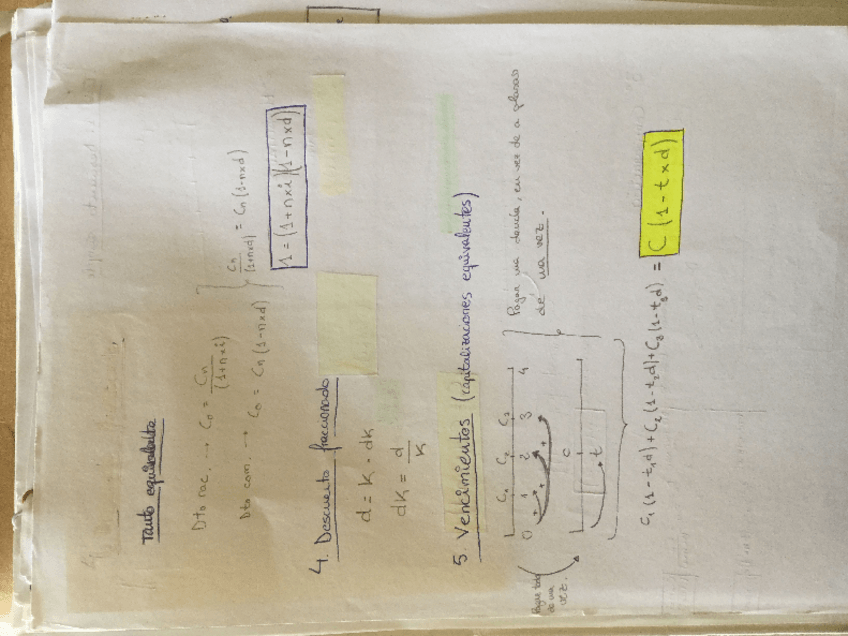 Tanto equivalente
Dto rac. → C₀ = Cn / (1+n×i)
Dto com. → C₀ = Cn (1-n×d)
Cn / (1+n×d) = Cn (1-n×d)
1 = (1+n×i)(1-n×d)
4. Descuento fraccionado
d = K · dK
dK = d / K
5. Vencimientos (capitalizaciones equivalentes)
C₁ C₂ C₃
0 1 2 3 4
C
t
Pagar una deuda, en vez de a plazos
de una vez.
Pagar todo
de una
vez.
C₁ (1-t₁d) + C₂ (1-t₂d) + C₃ (1-t₃d) = C (1-t×d)